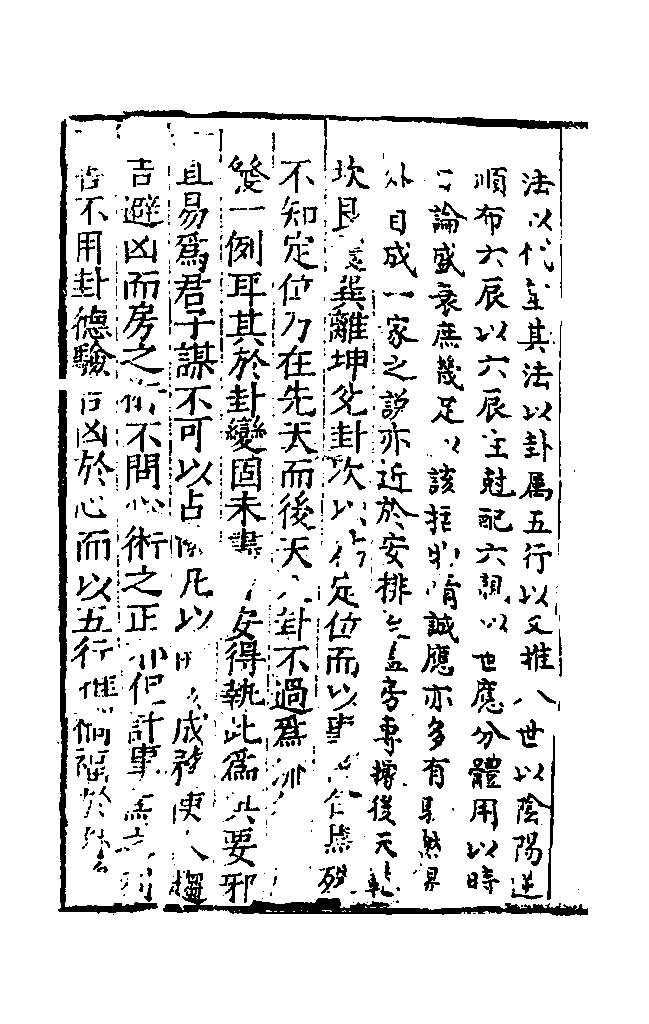 法以代其法以卦属五行以爻推八世以陰陽逆
順布六辰以六辰生尅配六親以世應分體用以時
日論盛衰庶幾足以該括物情誠應亦多有
外自成一家之說亦近於安排盖房專據後天乾
坎艮震巽離坤兌卦次以定位而以事
不知定位乃在先天而後天八卦不過為
變一例耳其於卦變固未盡安得執此為要邪
且易為君子謀不可以占凡以成務使人趨
吉避凶而房之術不問心術之正但計事
吉不用卦德驗吉凶於心而以五行推禍福於